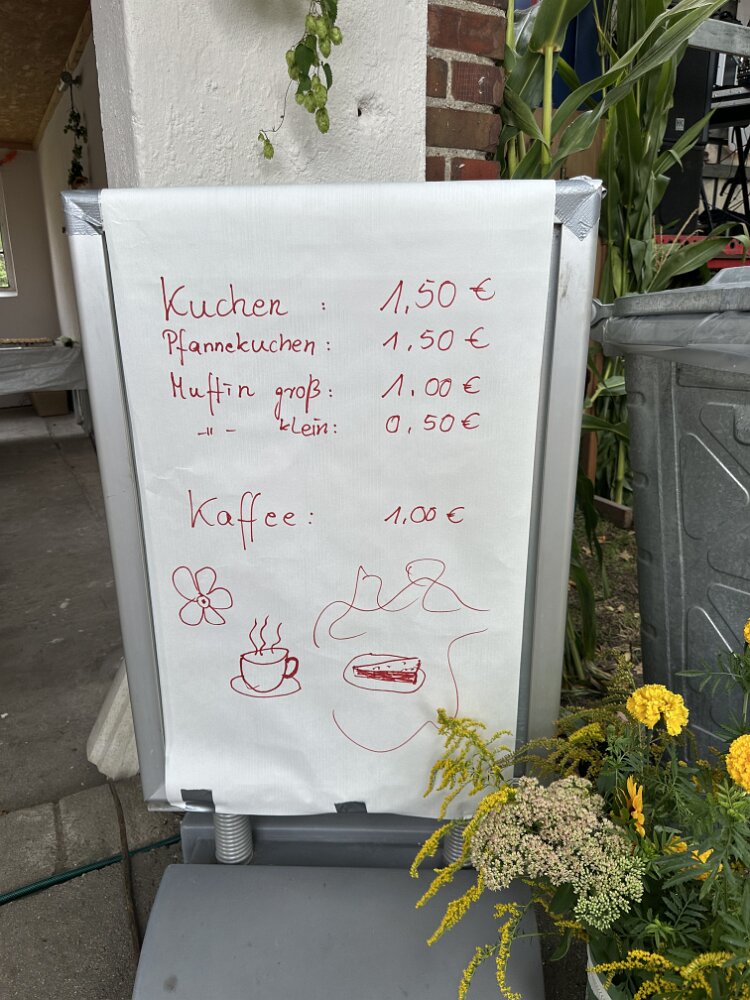 Kuchen : 1,50 €
Pfannekuchen : 1,50 €
Muffin groß : 1,00 €
-"- klein : 0,50 €
Kaffee : 1,00 €